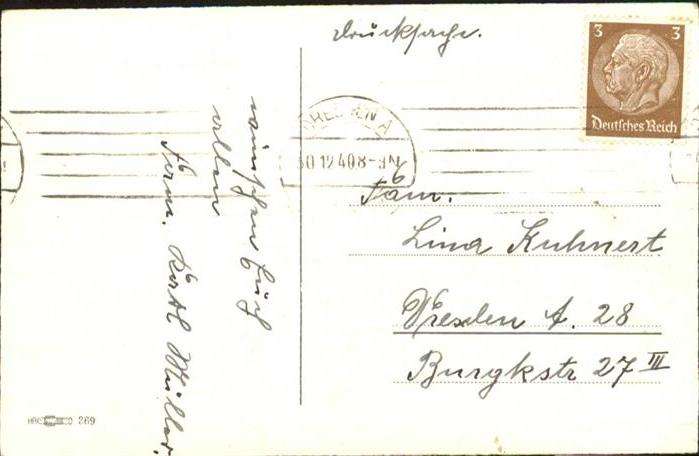 Drucksache.
3 3
Deutsches Reich
DRESDEN A
30.12.40 8-9 N
wünschen Euch
allen
Fam. Karl Müller.
Fam.
Lina Kuhnert
Dresden A. 28
Burgkstr 27 III
269